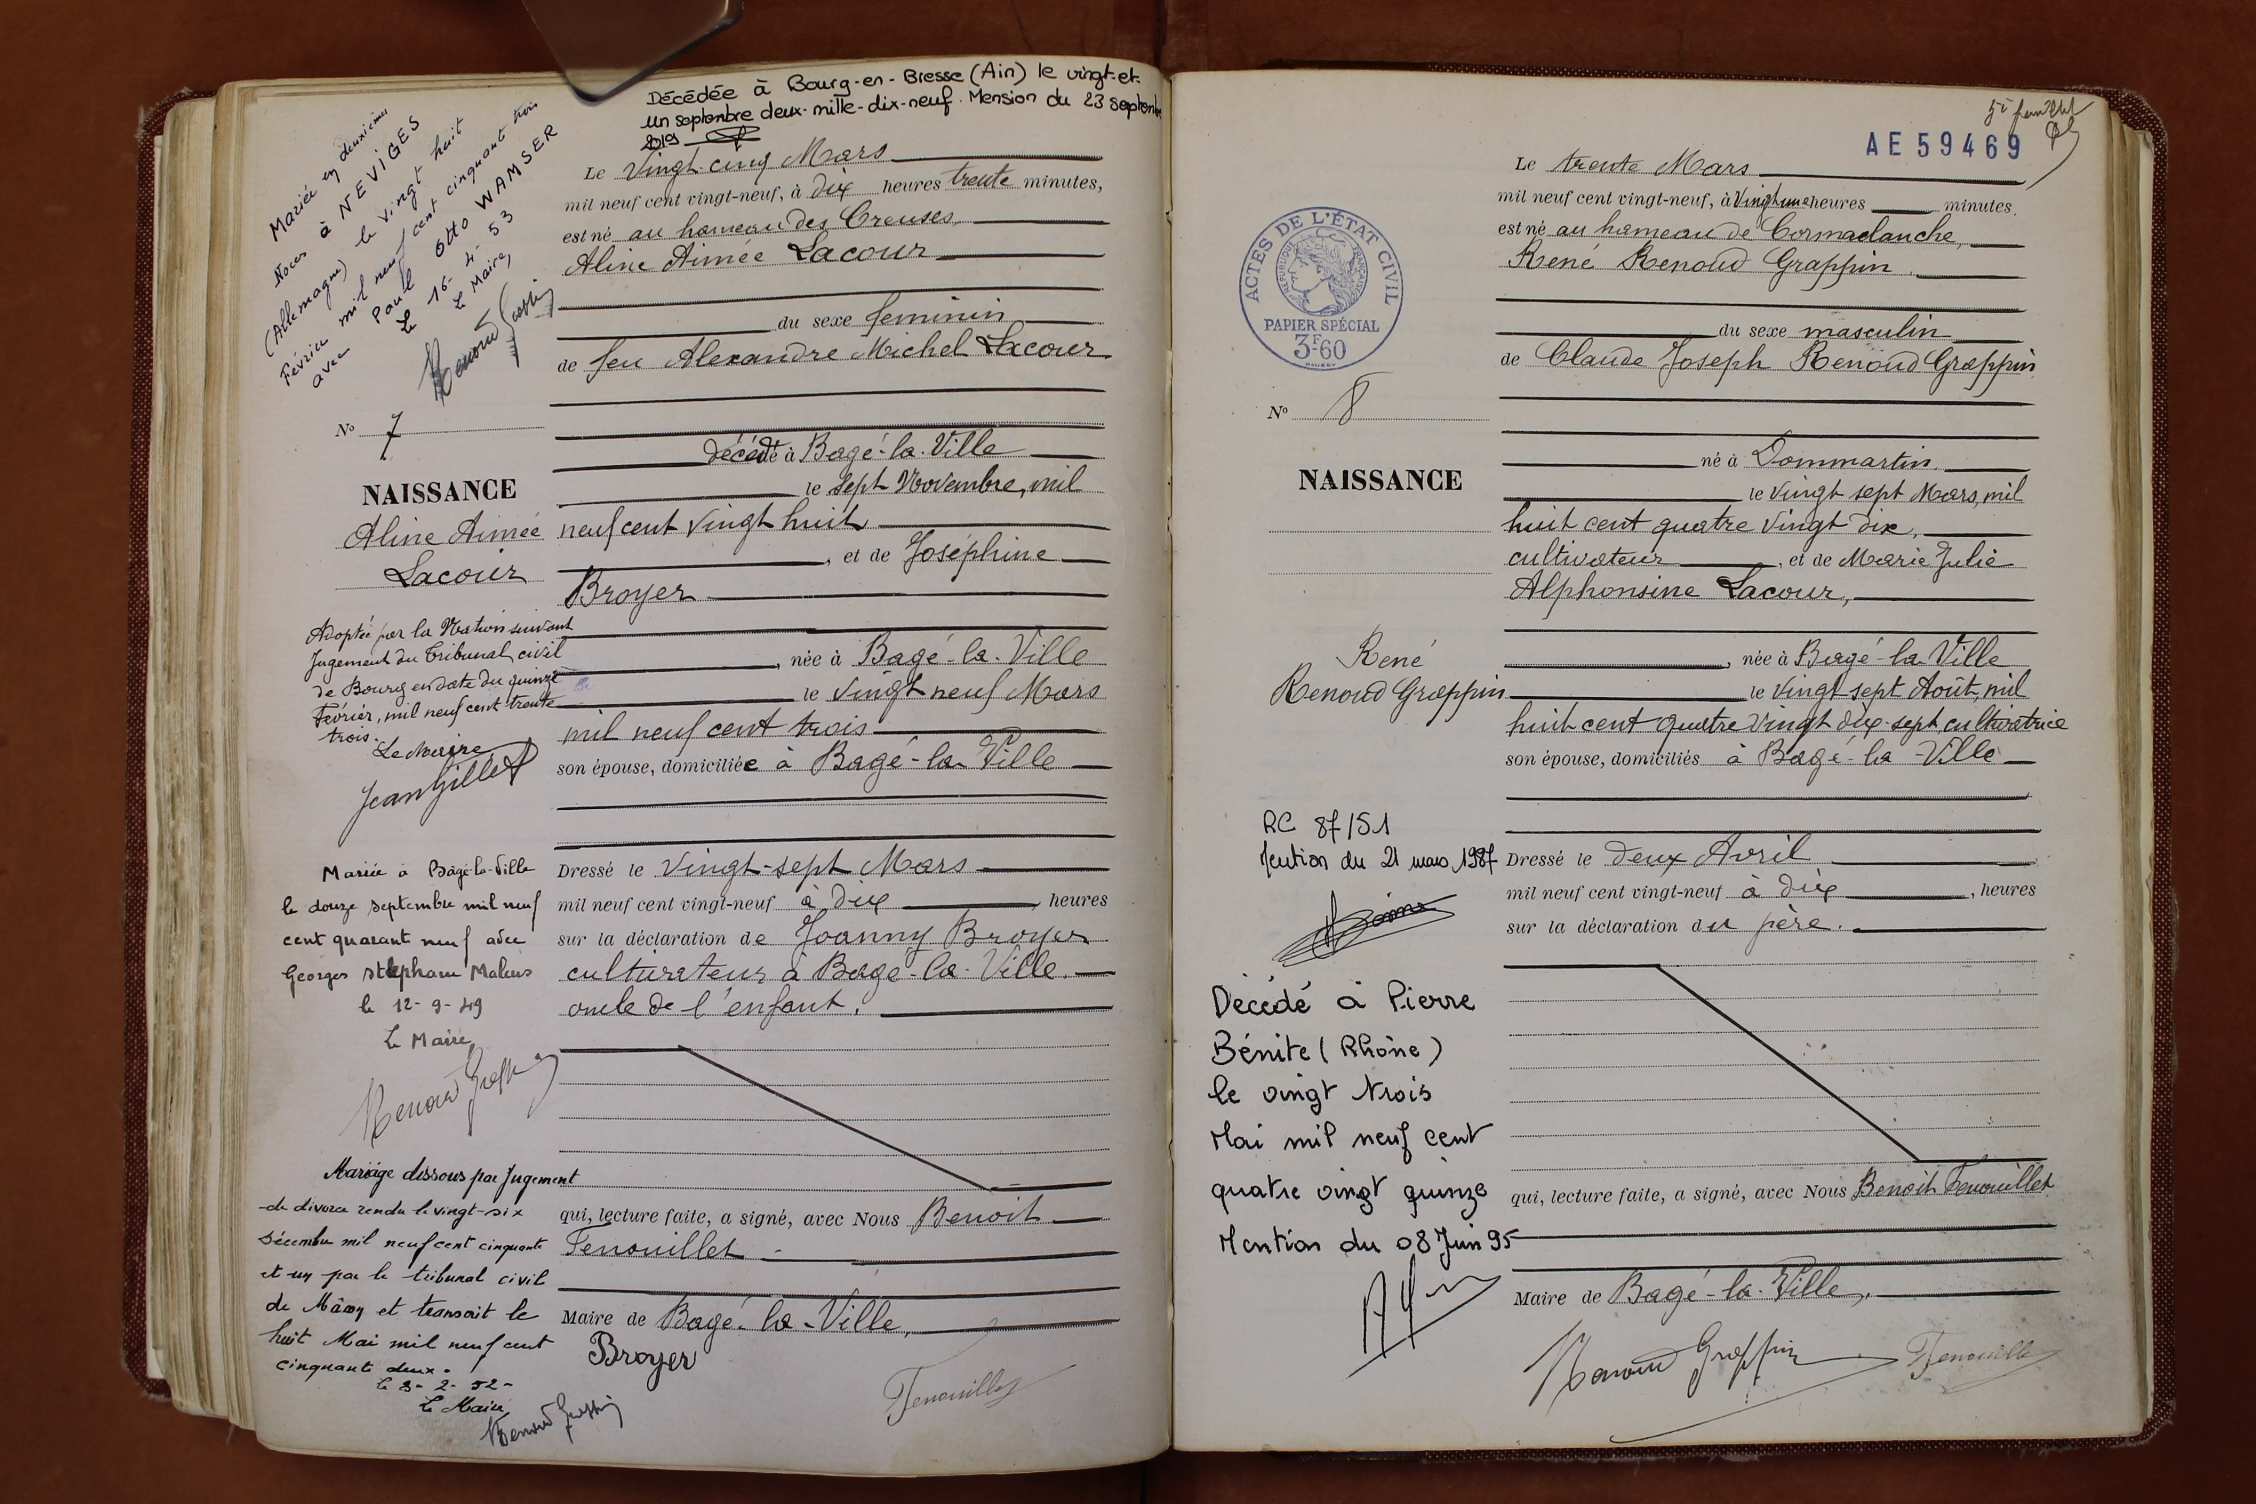 Décédée à Bourg-en-Bresse (Ain) le vingt-et-
un septembre deux-mille-dix-neuf. Mension du 23 septembre
2019
Mariée en deuxième
Noces à NEVIGES
(Allemagne) le vingt huit
Février mil neuf cent cinquante trois
avec Paul Otto WAMSER
Le 16-4-53
Le Maire,
Renoud Grappin
No 7
NAISSANCE
Aline Aimée
Lacour
Adoptée par la Nation suivant
Jugement du Tribunal civil
de Bourg en date du quinze
Février, mil neuf cent trente
trois.
Le Maire
Jean Gillet
Mariée à Bâgé-la-Ville
le douze septembre mil neuf
cent quarant neuf avec
Georges Stéphane
le 12-9-49
Le Maire,
Renoud Grappin
Mariage dissous par Jugement
de divorce rendu le vingt-six
Décembre mil neuf cent cinquante
et un par le tribunal civil
de Mâcon et transcrit le
huit Mai mil neuf cent
cinquante deux.
le 8-2-52-
Le Maire
Renoud Grappin
Le Vingt-cinq Mars
mil neuf cent vingt-neuf, à dix heures trente minutes,
est né au hameau des Creuses,
Aline Aimée Lacour
du sexe féminin
de feu Alexandre Michel Lacour
décédé à Bagé-la-Ville
le sept Novembre, mil
neuf cent vingt huit
, et de Joséphine
Broyer
, née à Bagé-la-Ville
le vingt neuf Mars
mil neuf cent trois
son épouse, domiciliée à Bagé-la-Ville
Dressé le vingt-sept Mars
mil neuf cent vingt-neuf à dix , heures
sur la déclaration de Joanny Broyer
cultivateur à Bagé-la-Ville.
oncle de l'enfant.
qui, lecture faite, a signé, avec Nous Benoit
Fenouillet
Maire de Bagé-la-Ville,
Broyer
Fenouillet
5e feuillet
AE 59469
ACTES DE L'ÉTAT CIVIL
RÉPUBLIQUE FRANÇAISE
PAPIER SPÉCIAL
3F-60
No 8
NAISSANCE
René
Renoud Grappin
RC 87/51
Mention du 21 mars 1987
Décédé à Pierre
Bénite (Rhône)
le vingt trois
Mai mil neuf cent
quatre vingt quinze
Mention du 08 Juin 95
Le trente Mars
mil neuf cent vingt-neuf, à Vingt une heures minutes.
est né au hameau de Cormaclanche,
René Renoud Grappin
du sexe masculin
de Claude Joseph Renoud Grappin
né à Dommartin
le vingt sept Mars, mil
huit cent quatre vingt dix,
cultivateur , et de Marie Julie
Alphonsine Lacour,
, née à Bagé-la-Ville
le vingt-sept Août, mil
huit cent quatre vingt dix-sept cultivatrice
son épouse, domiciliés à Bagé-la-Ville
Dressé le deux Avril
mil neuf cent vingt-neuf à dix , heures
sur la déclaration du père.
qui, lecture faite, a signé, avec Nous Benoit Fenouillet
Maire de Bagé-la-Ville,
Renoud Grappin
Fenouillet